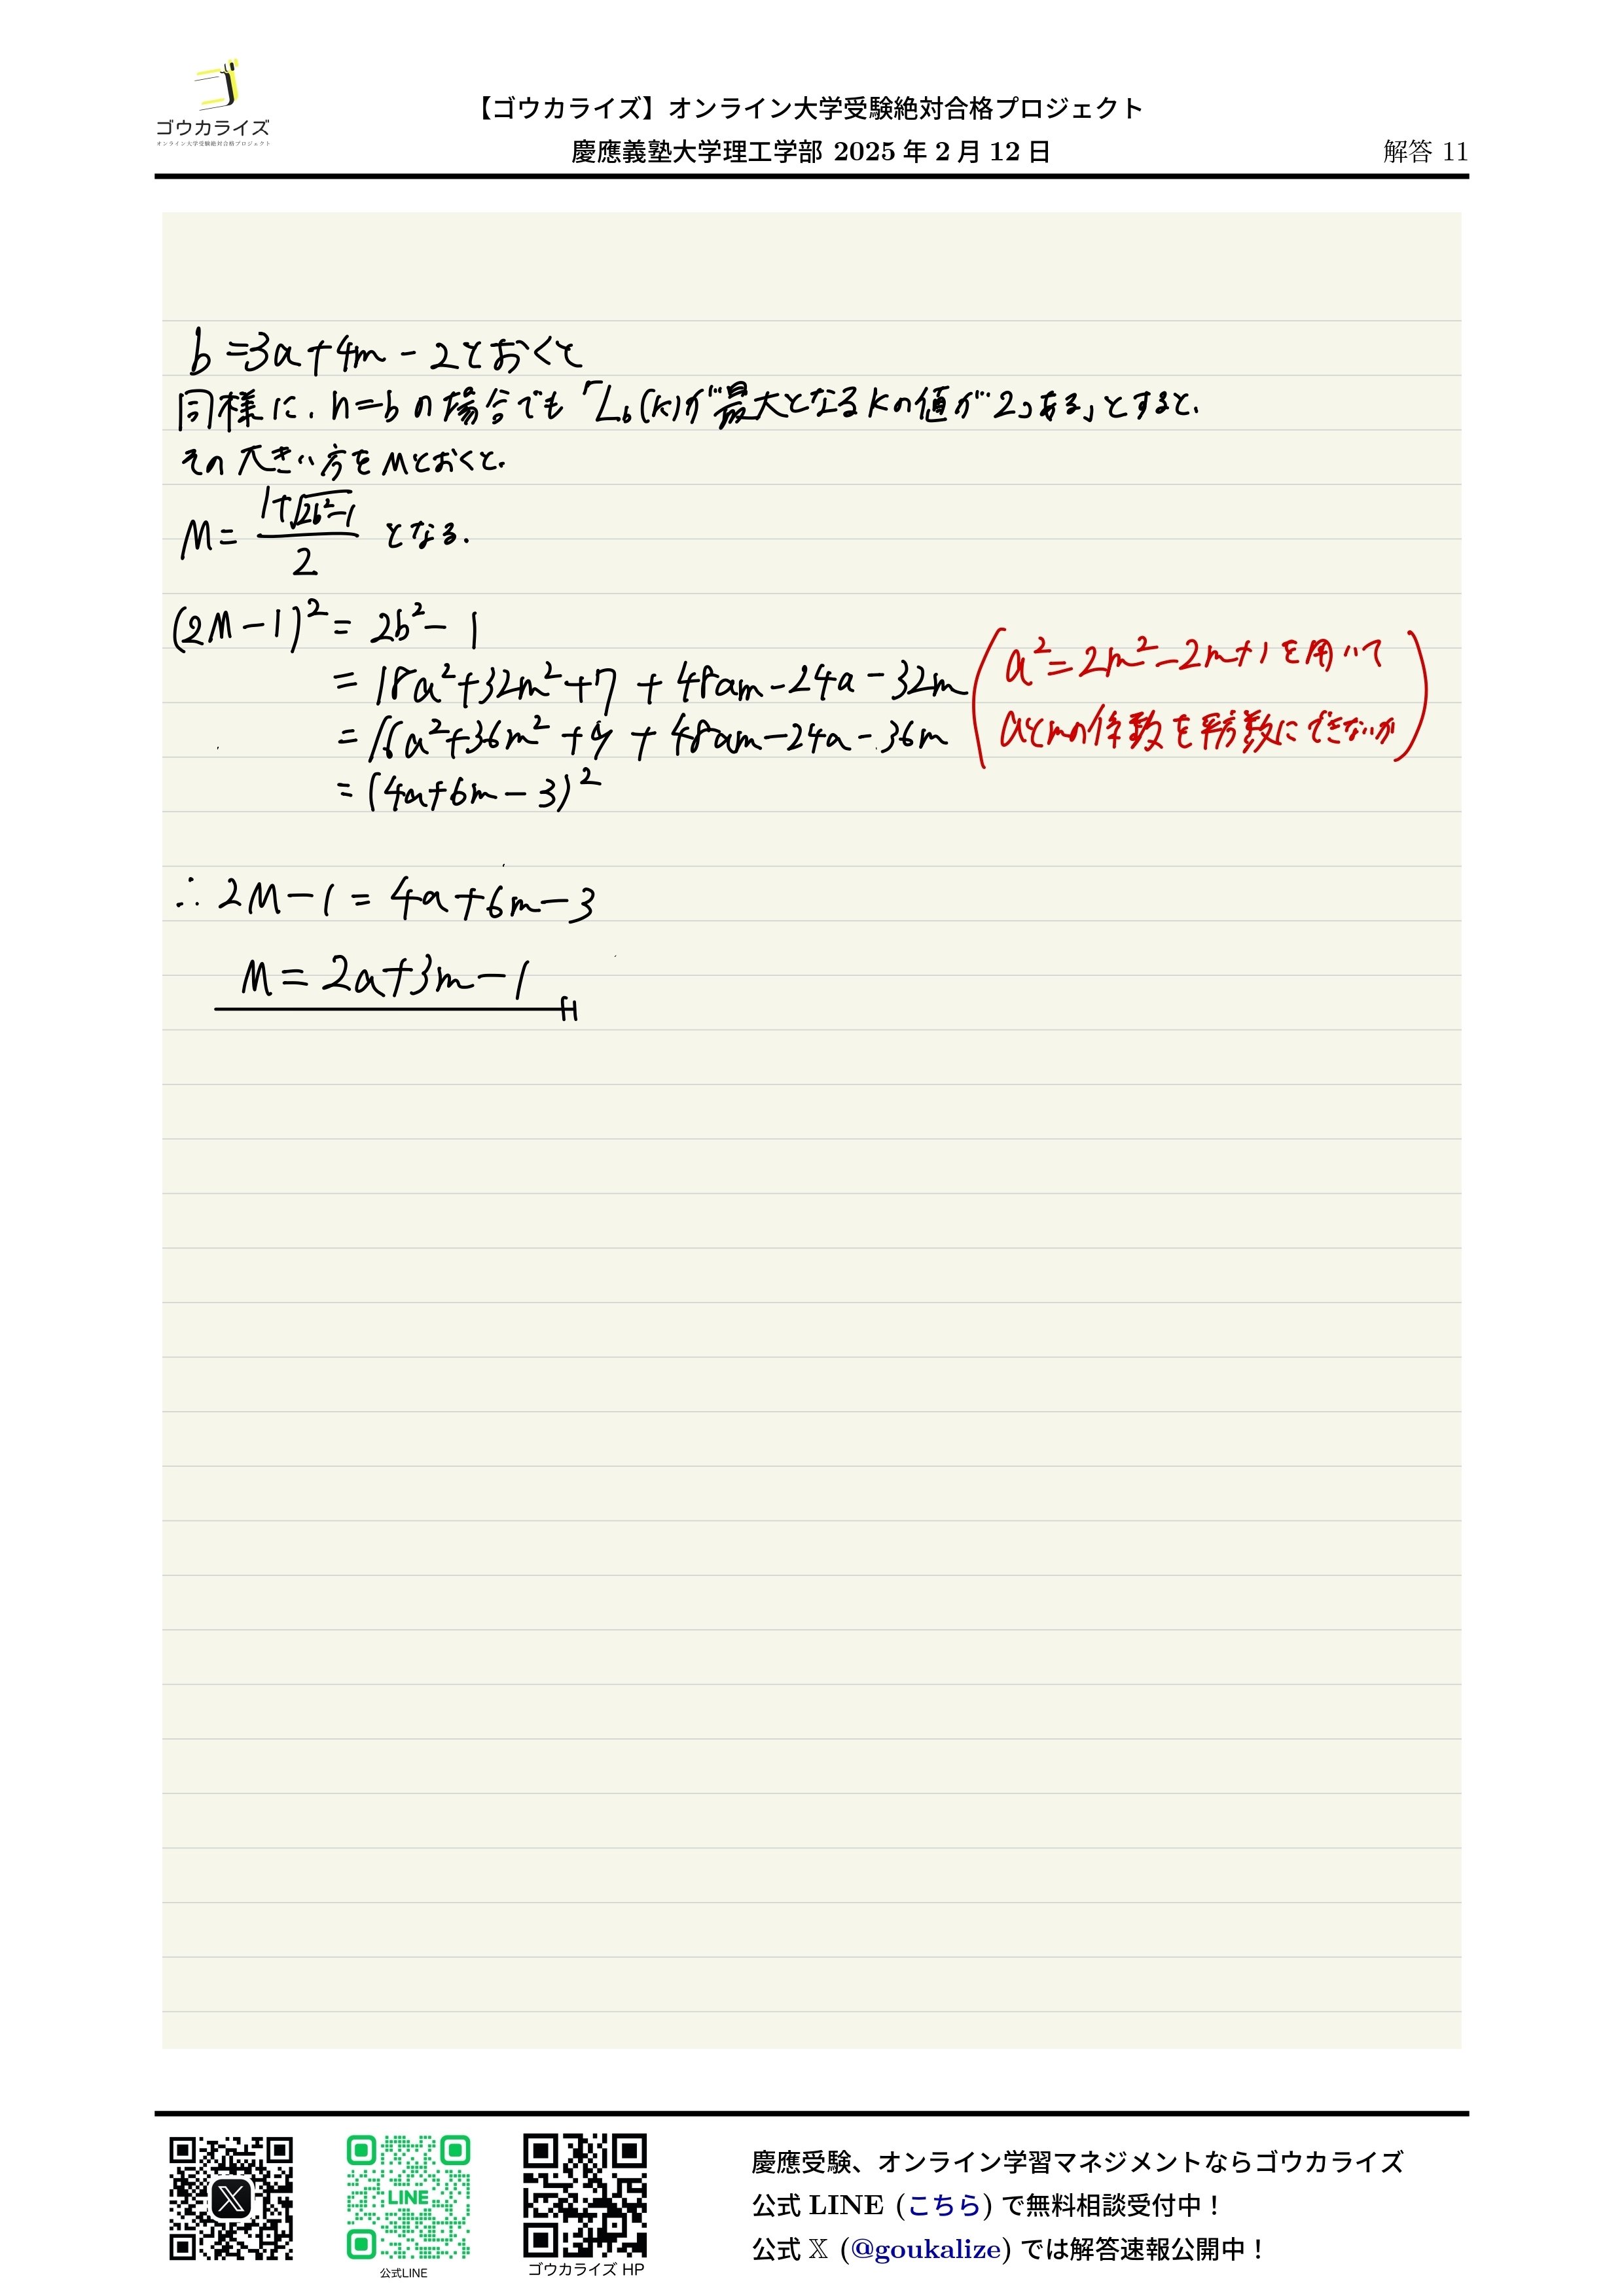 ゴウカライズ
オンライン大学受験絶対合格プロジェクト
【ゴウカライズ】オンライン大学受験絶対合格プロジェクト
慶應義塾大学理工学部 2025 年 2 月 12 日
解答 11
b=3a+4m-2とおくと
同様に、n=bの場合でも「L_b(k)が最大となるkの値が2つある」とすると、
その大きい方をMとおくと、
M= (1+√(2b²-1))/2 となる.
(2M-1)² = 2b²-1
= 18a²+32m²+7+48am-24a-32m
= 16a²+36m²+9+48am-24a-36m
= (4a+6m-3)²
(a²=2m²-2m+1を用いて
aとmの係数を平方数にできないか)
∴ 2M-1 = 4a+6m-3
M=2a+3m-1
LINE
公式LINE
ゴウカライズ HP
慶應受験、オンライン学習マネジメントならゴウカライズ
公式 LINE (こちら) で無料相談受付中！
公式 𝕏 (@goukalize) では解答速報公開中！